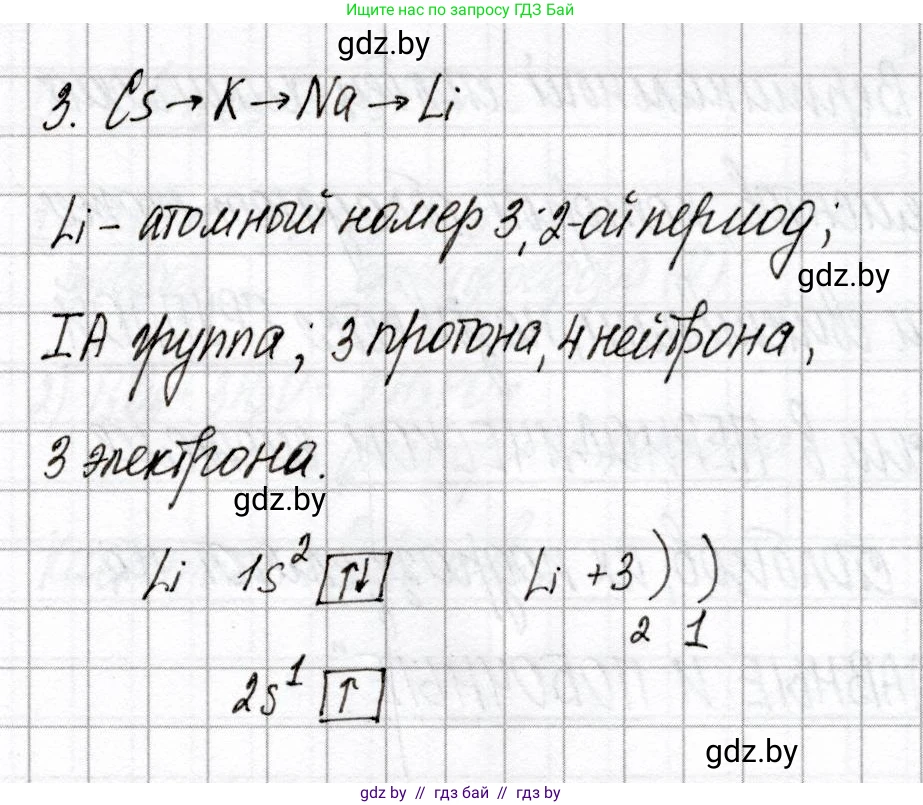 Ищите нас по запросу ГДЗ Бай
gdz.by
3. Cs→K→Na→Li
Li - атомный номер 3; 2-ой период;
gdz.by
IA группа; 3 протона, 4 нейтрона,
3 электрона.
gdz.by
Li 1s² ↑↓ Li +3 ) )
2 1
2s¹ ↑
gdz.by
gdz.by // гдз бай // gdz.by